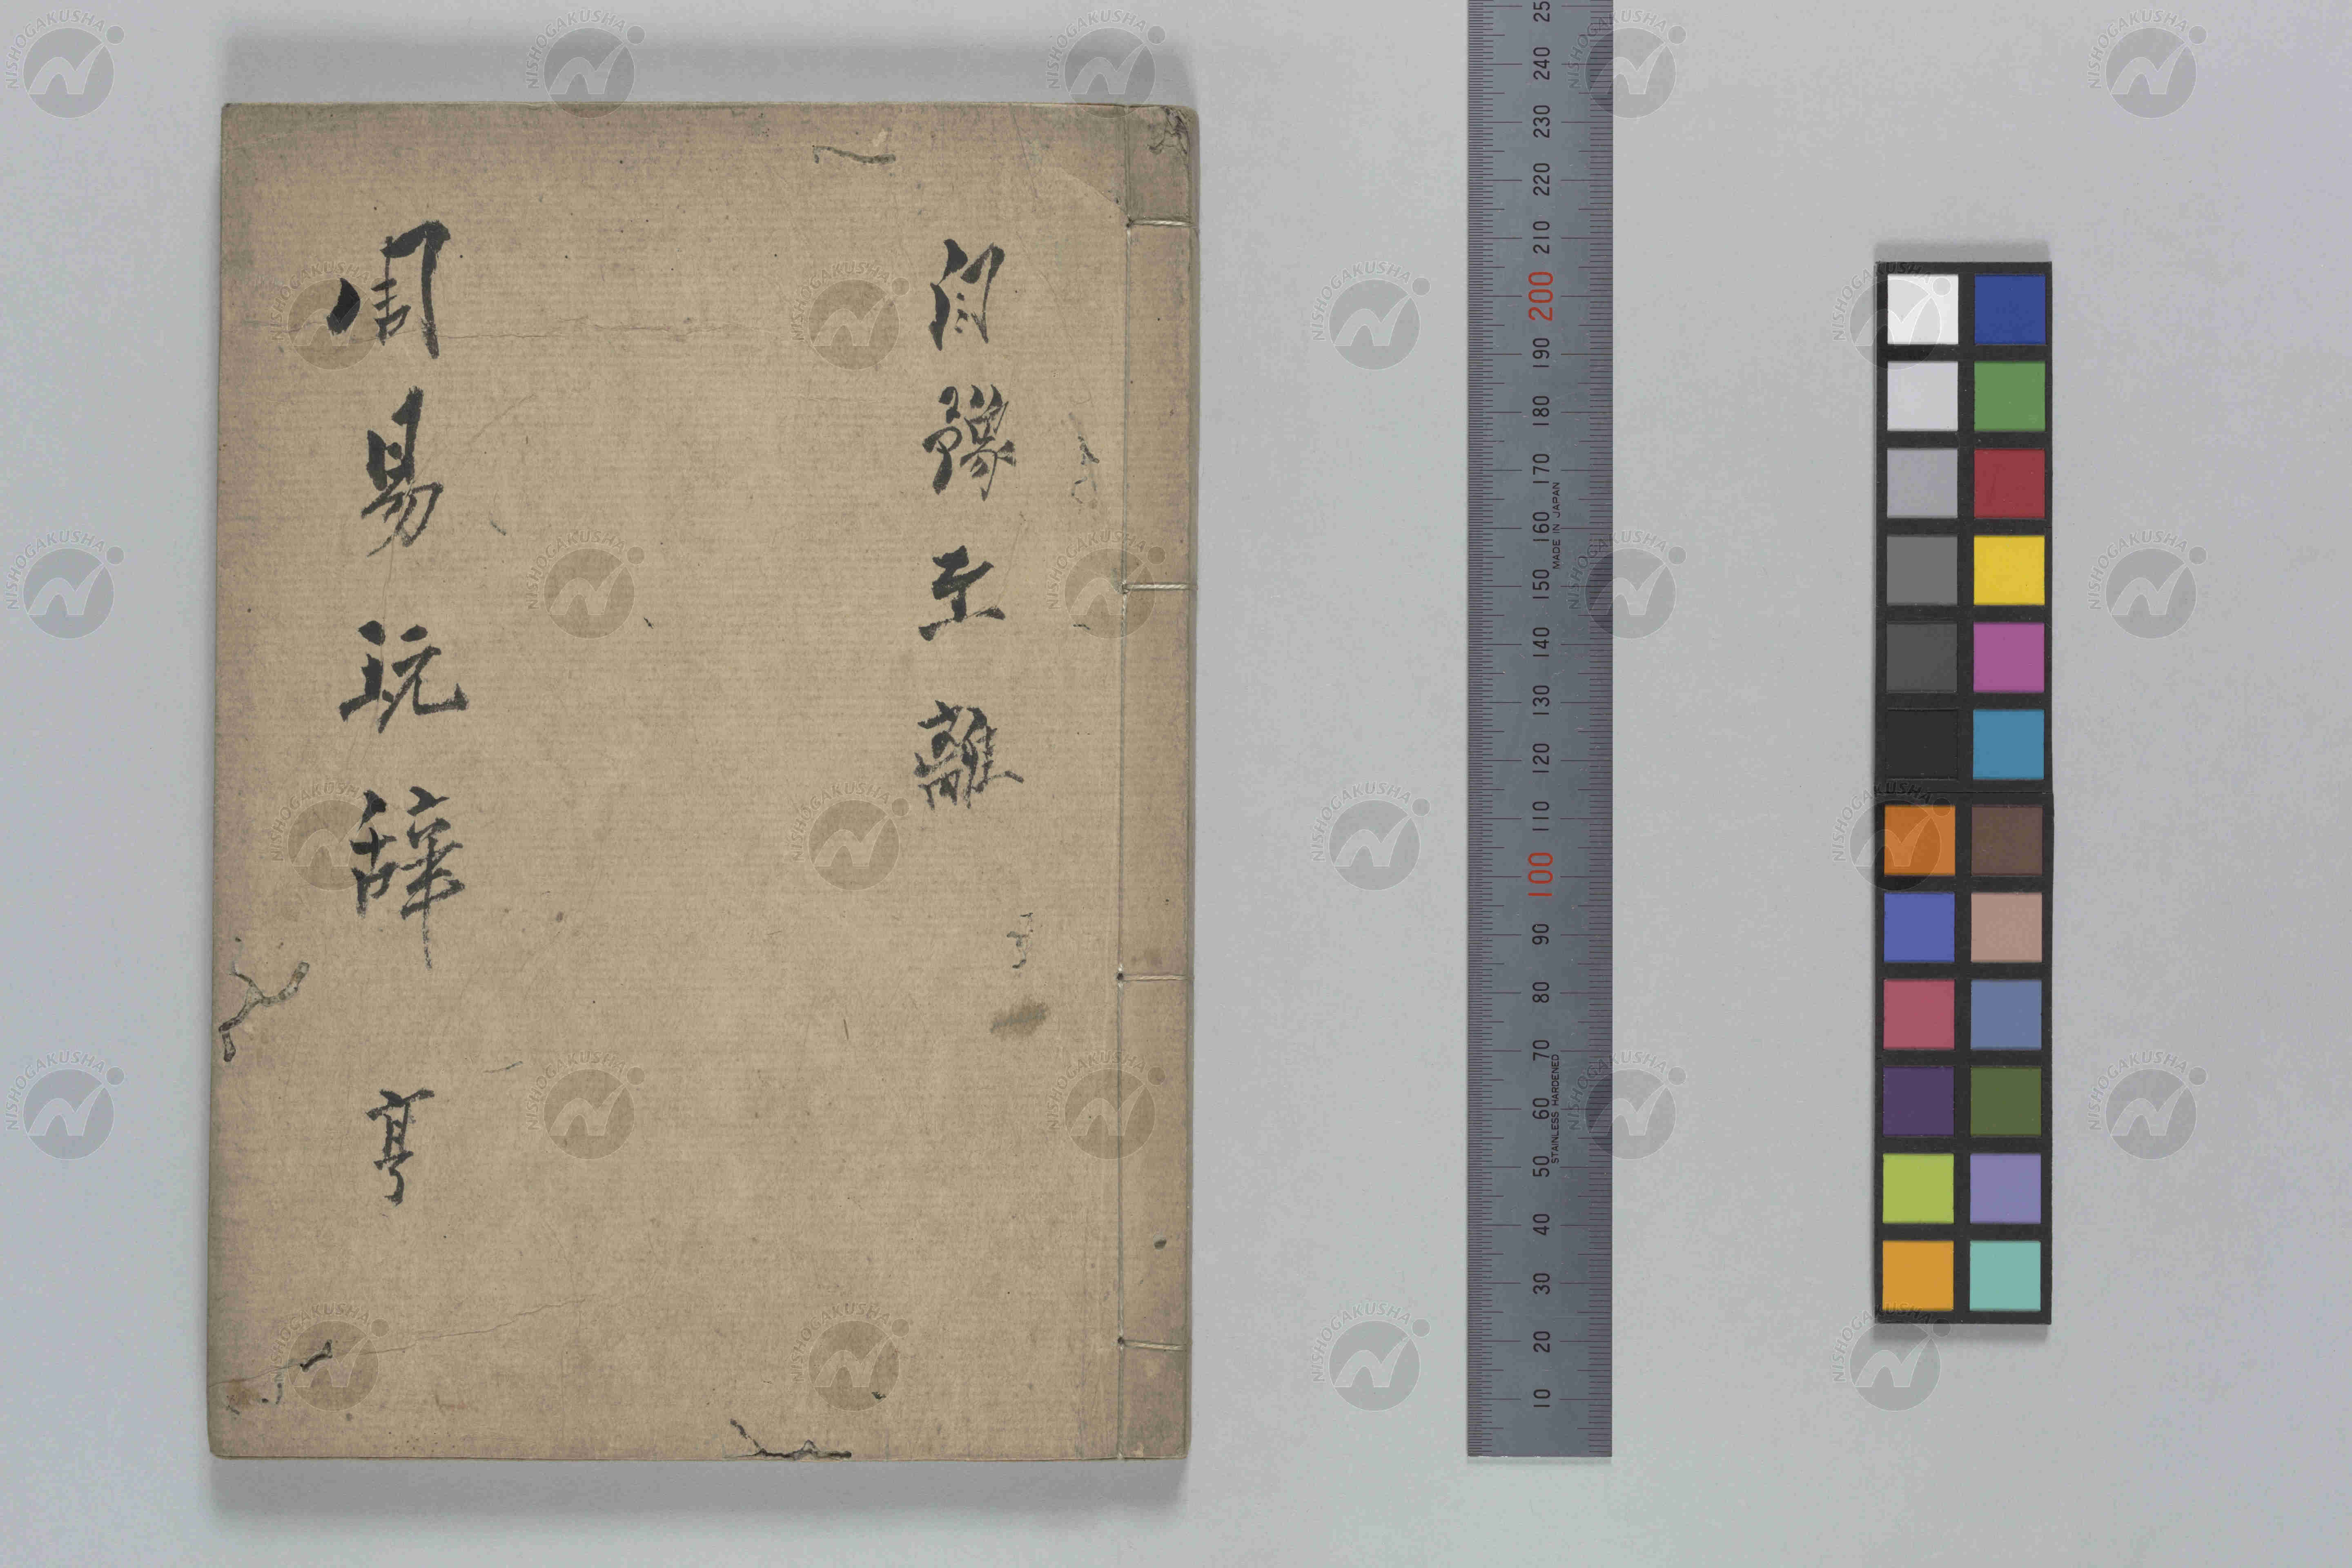 自豫至離
周易玩辞 亨
250
240
230
220
210
200
190
180
170
160
150
140
130
120
110
100
90
80
70
60
50
40
30
20
10
MADE IN JAPAN
STAINLESS HARDENED
NISHOGAKUSHA